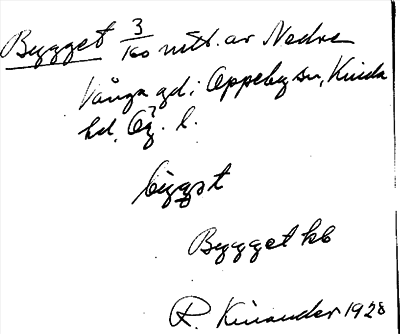 Bygget 3/160 mtl. av Nedre
Vånga gd i Oppeby sn, Kinda
hd, Ög. l.
byggət
Bygget kb
R. Kinander 1928